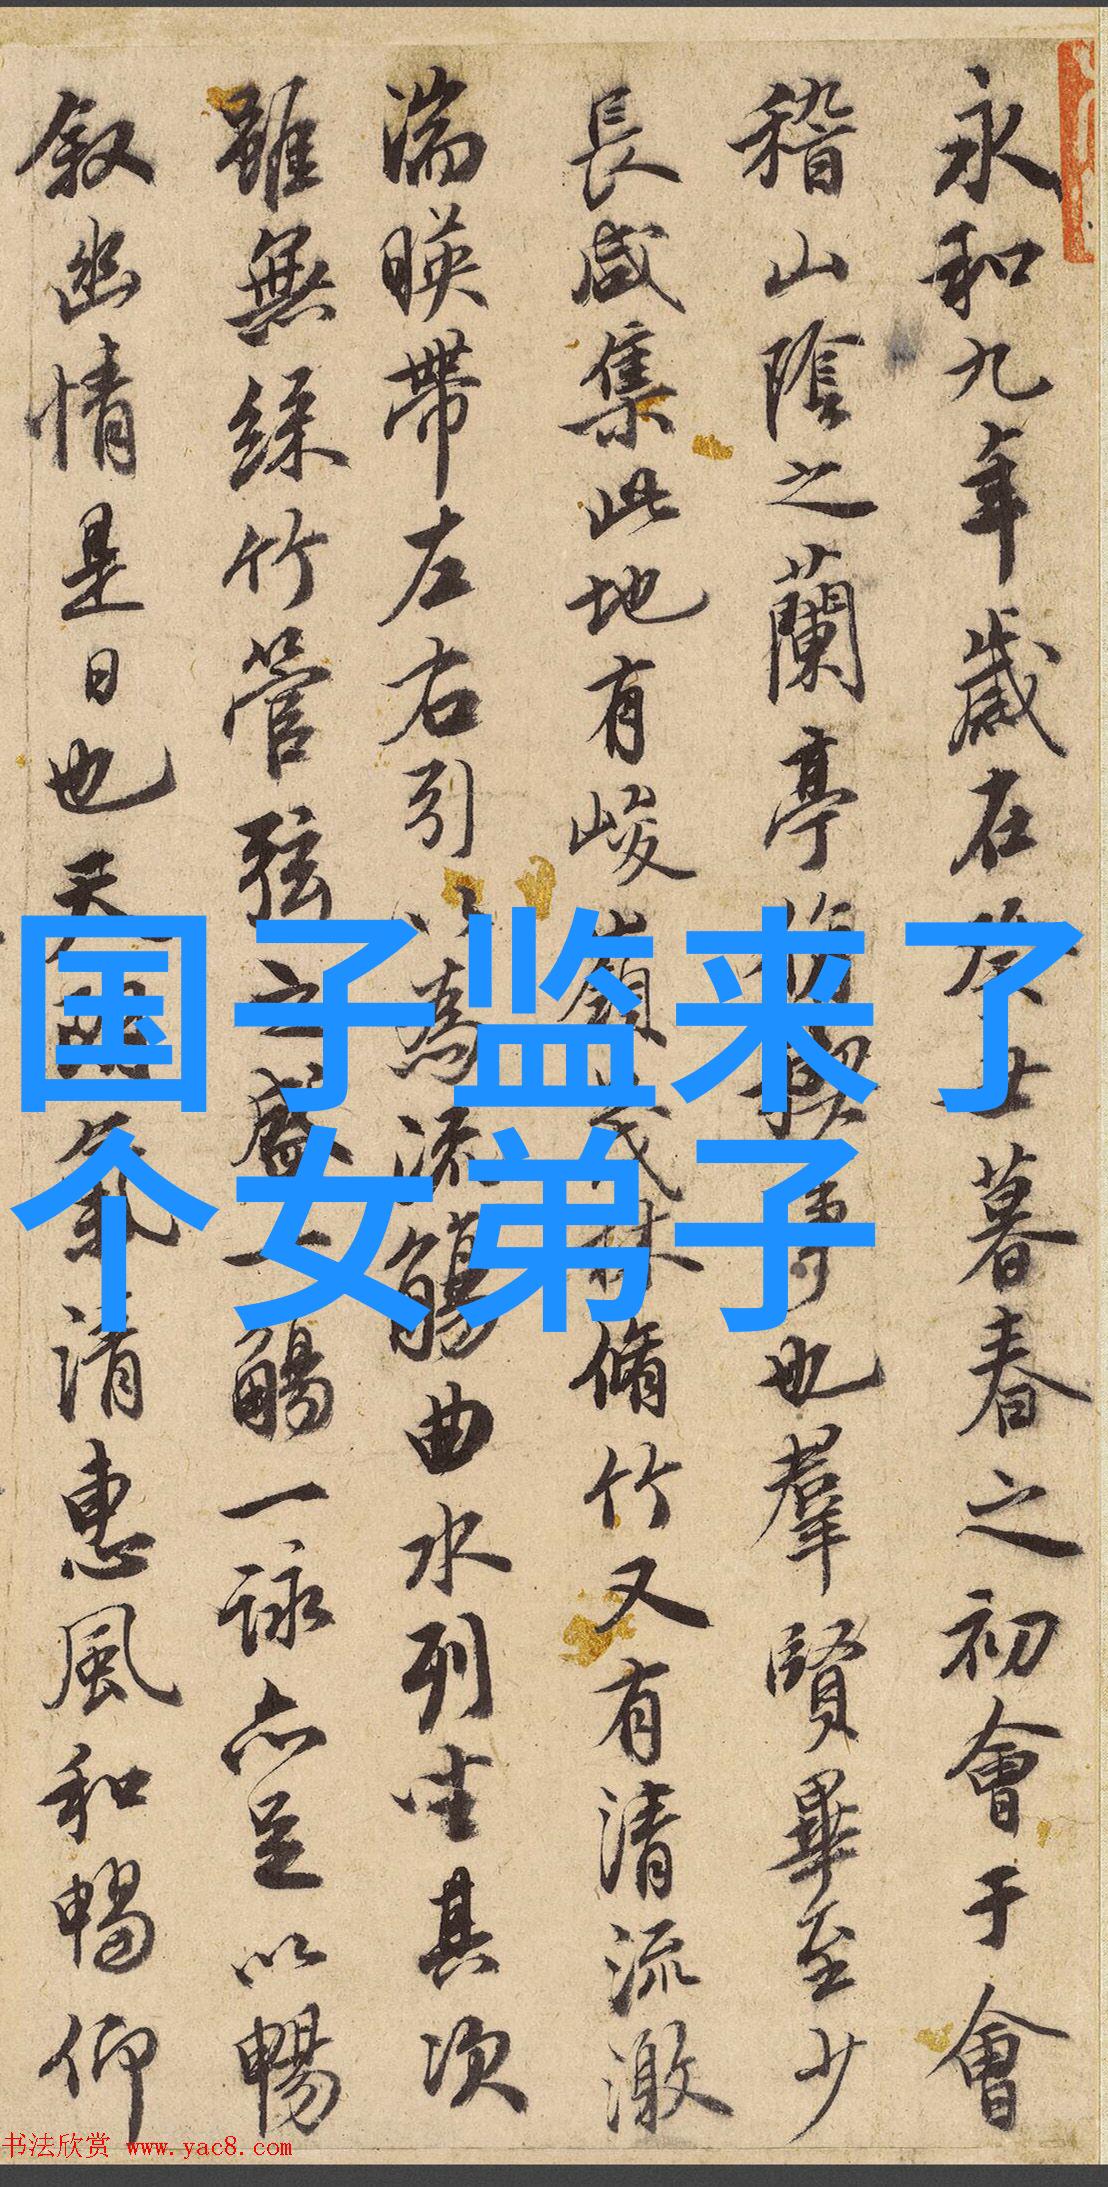 永和九年歲在癸丑暮春之初會于會
稽山陰之蘭亭脩稧事也羣賢畢至少
長咸集此地有峻嶺茂林脩竹又有清流激
湍暎帶左右引以為流觴曲水列坐其次
雖無絲竹管弦之盛一觴一詠亦足以暢
敘幽情是日也天朗氣清惠風和暢仰
国子监来了
个女弟子
书法欣赏 www.yac8.com